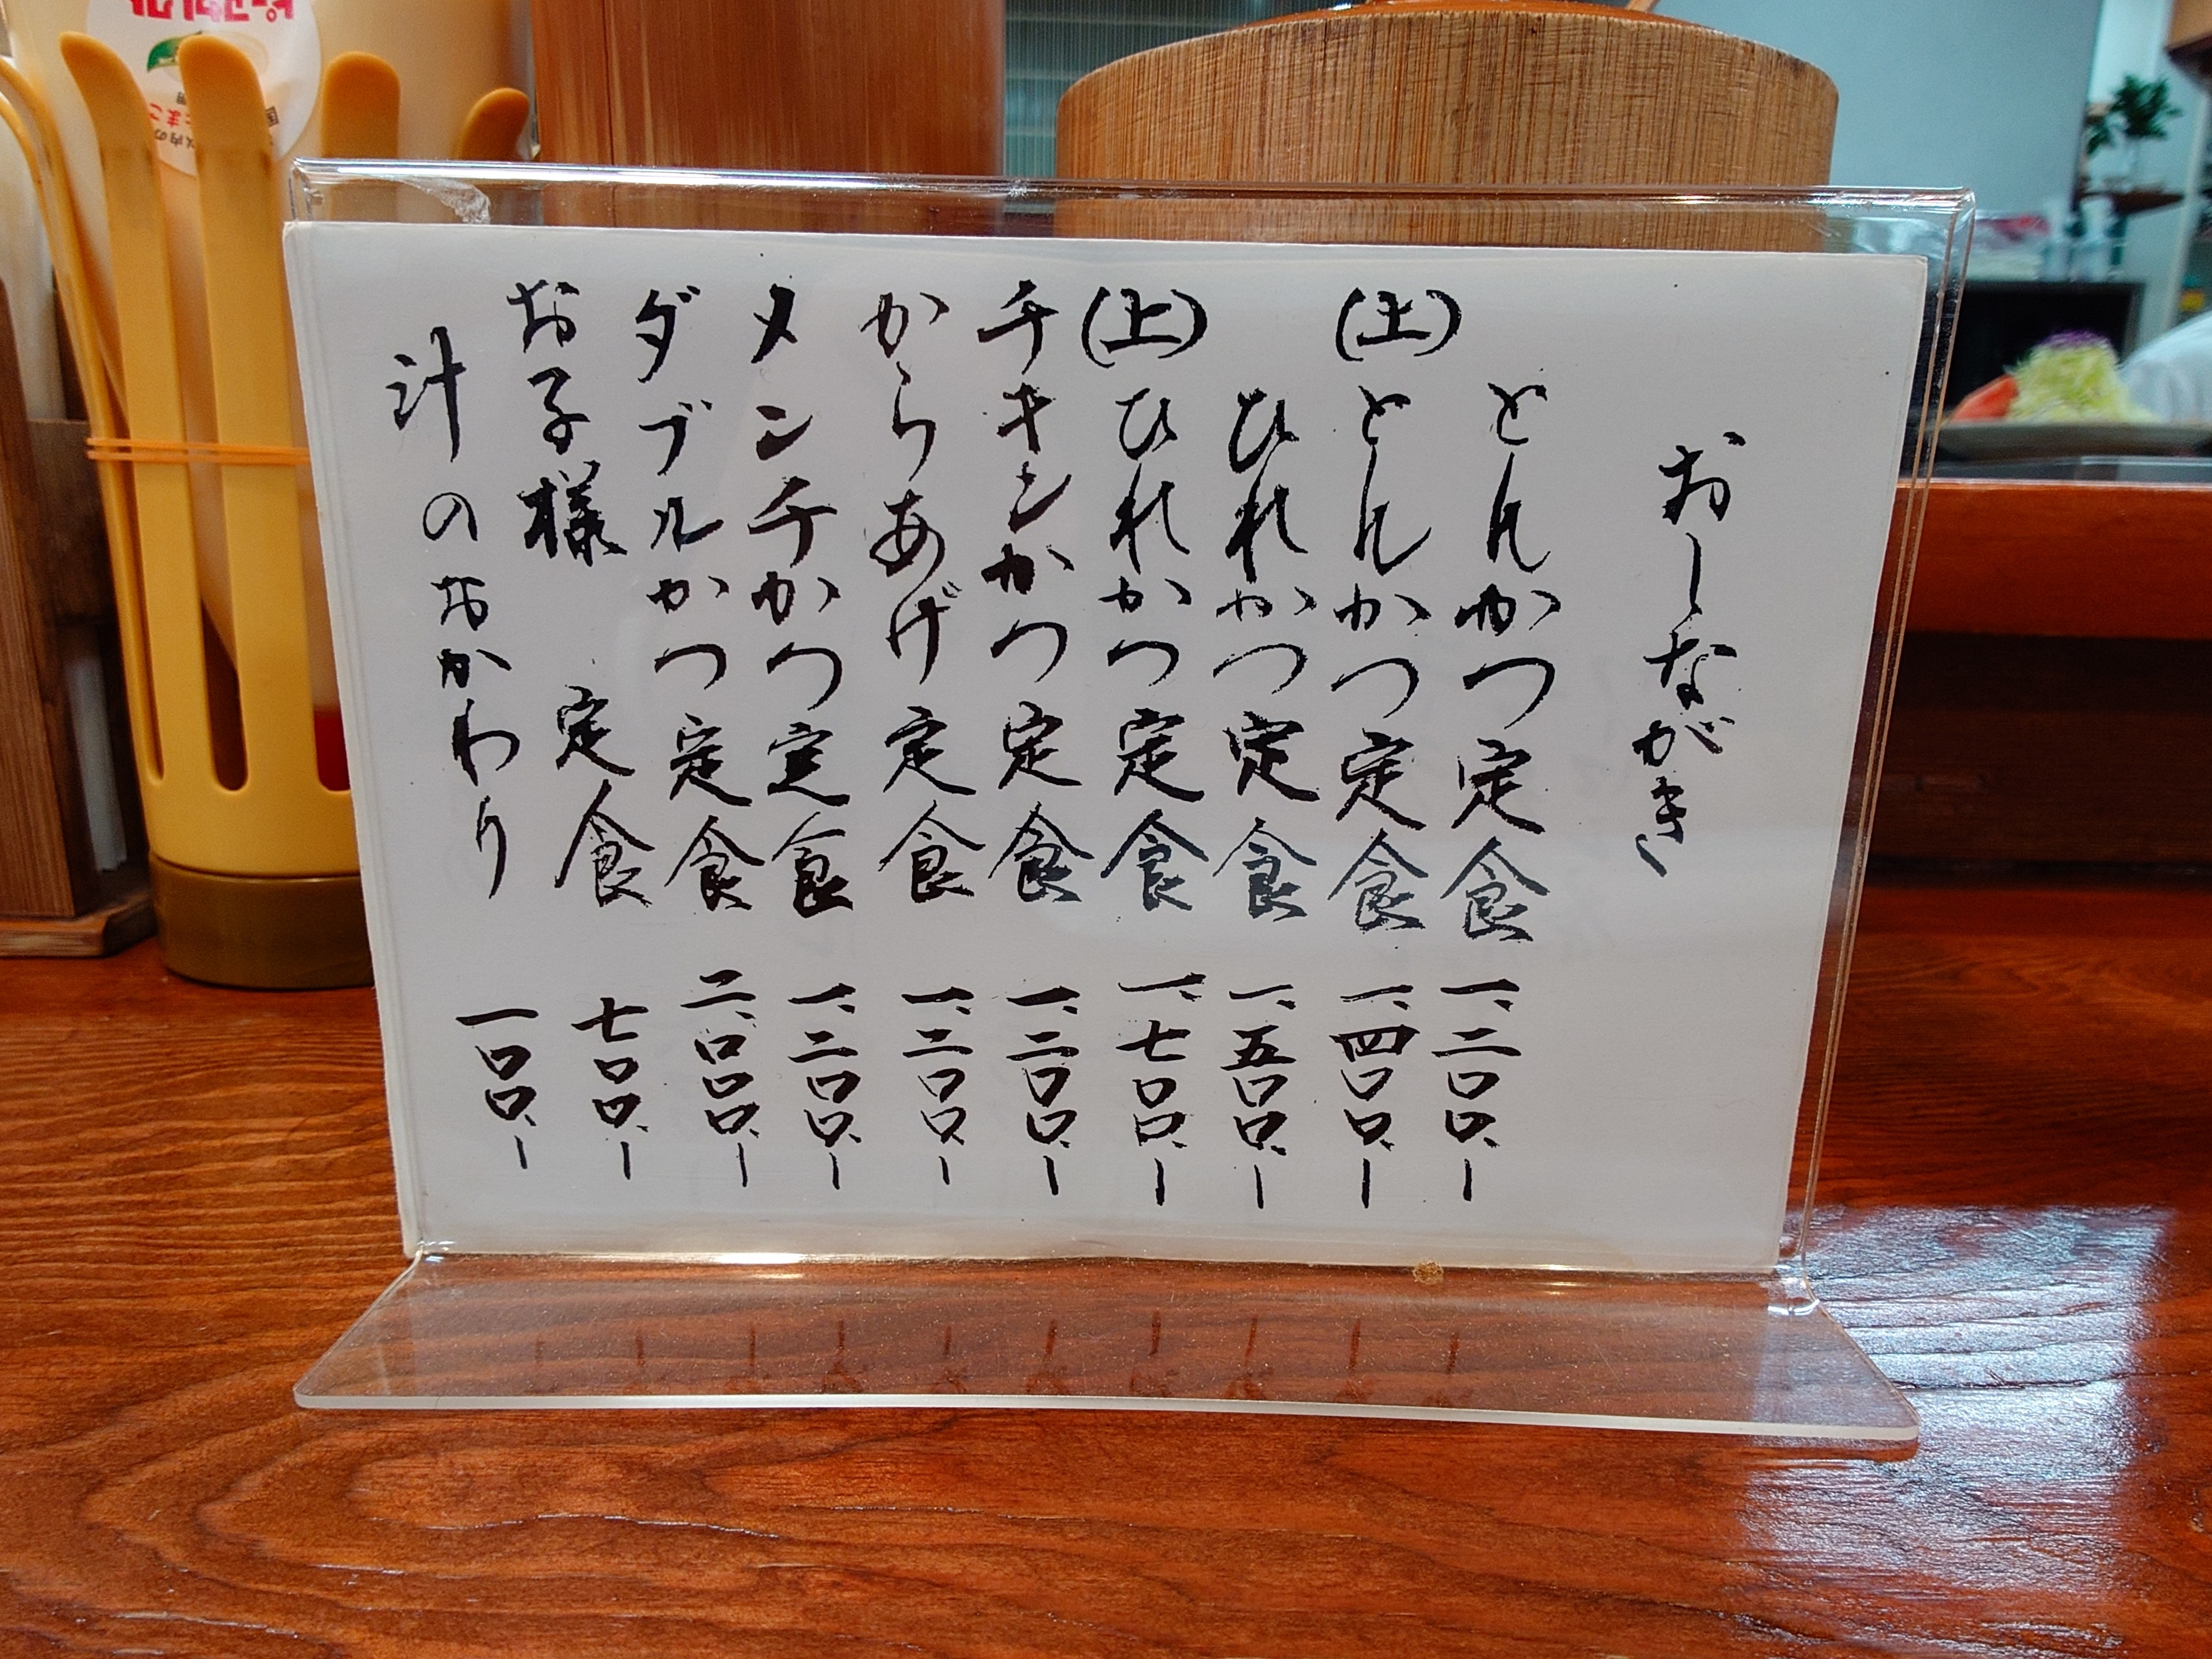 おしながき
とんかつ定食 一、二〇〇、ー
(上)とんかつ定食 一、四〇〇、ー
ひれかつ定食 一、五〇〇、ー
(上)ひれかつ定食 一、七〇〇、ー
チキンかつ定食 一、二〇〇、ー
からあげ定食 一、二〇〇、ー
メンチかつ定食 一、二〇〇、ー
ダブルかつ定食 二、〇〇〇、ー
お子様 定食 七〇〇、ー
汁のおかわり 一〇〇、ー